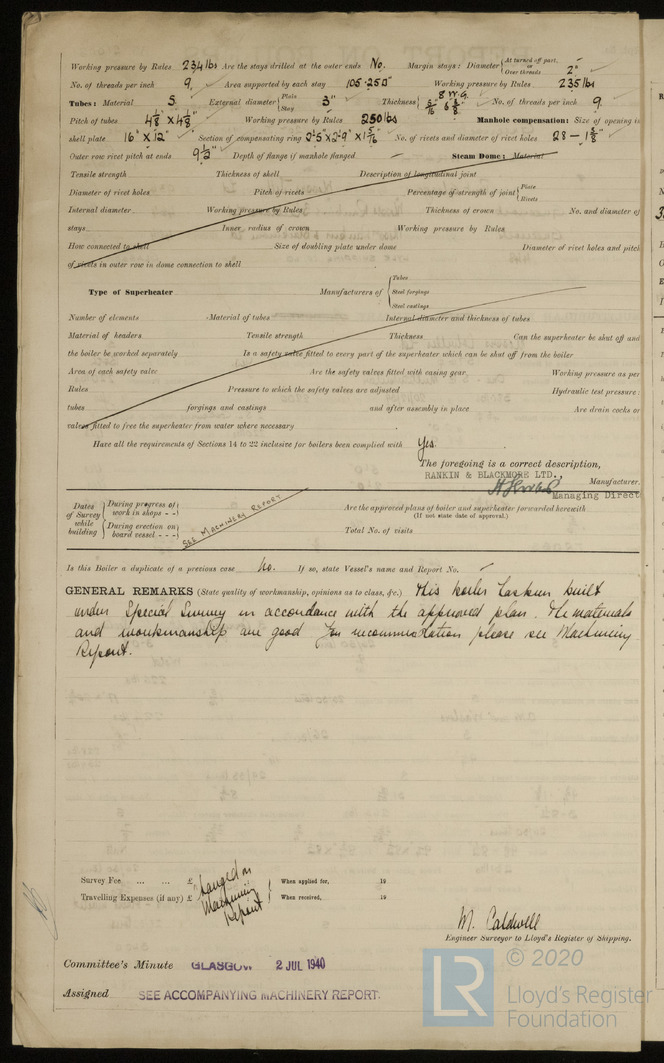 Working pressure by Rules 234 lbs Are the stays drilled at the outer ends No. Margin stays: Diameter { At turned off part, or Over threads 2"
No. of threads per inch 9 Area supported by each stay 105.25 □" Working pressure by Rules 235 lbs
Tubes: Material S. External diameter { Plain Stay 3" Thickness { 8 W.G. 5/16" & 3/8" No. of threads per inch 9
Pitch of tubes 4 1/8" x 4 1/8" Working pressure by Rules 250 lbs Manhole compensation: Size of opening in
shell plate 16" x 12" Section of compensating ring No. of rivets and diameter of rivet holes 28 –
Outer row rivet pitch at ends 9 1/2" Depth of flange if manhole flanged – Steam Dome: Material
Tensile strength Thickness of shell Description of longitudinal joint
Diameter of rivet holes Pitch of rivets Percentage of strength of joint { Plate Rivets
Internal diameter Working pressure by Rules Thickness of crown No. and diameter of
stays Inner radius of crown Working pressure by Rules
How connected to shell Size of doubling plate under dome Diameter of rivet holes and pitch
of rivets in outer row in dome connection to shell
Type of Superheater Manufacturers of { Tubes Steel forgings Steel castings
Number of elements Material of tubes Internal diameter and thickness of tubes
Material of headers Tensile strength Thickness Can the superheater be shut off and
the boiler be worked separately Is a safety valve fitted to every part of the superheater which can be shut off from the boiler
Area of each safety valve Are the safety valves fitted with easing gear Working pressure as per
Rules Pressure to which the safety valves are adjusted Hydraulic test pressure:
tubes forgings and castings and after assembly in place Are drain cocks or
valves fitted to free the superheater from water where necessary
Have all the requirements of Sections 14 to 22 inclusive for boilers been complied with Yes.
The foregoing is a correct description,
RANKIN & BLACKMORE LTD.,
Manufacturer.
Managing Direct
Dates of Survey while building { During progress of work in shops - - } During erection on board vessel - - - } SEE MACHINERY REPORT
Are the approved plans of boiler and superheater forwarded herewith
(If not state date of approval.)
Total No. of visits
Is this Boiler a duplicate of a previous case No. If so, state Vessel's name and Report No. –
GENERAL REMARKS (State quality of workmanship, opinions as to class, &c.) This boiler has been built
under Special Survey in accordance with the approved plan. The materials
and workmanship are good. For recommendation please see Machinery
Report.
Survey Fee ... ... £ Charged on When applied for, 19
Travelling Expenses (if any) £ Machinery Report When received, 19
M. Caldwell
Engineer Surveyor to Lloyd's Register of Shipping.
Committee's Minute GLASGOW 2 JUL 1940
Assigned SEE ACCOMPANYING MACHINERY REPORT.
© 2020
LR Lloyd's Register
Foundation